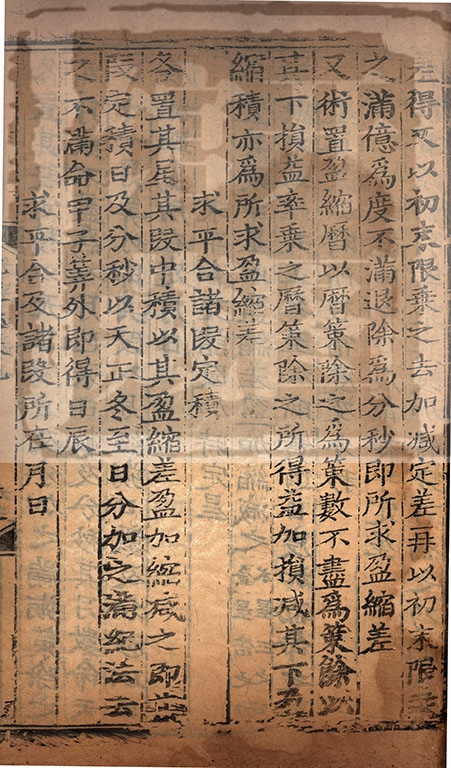 差得又以初末限乗之去加减定差再以初末限乗
之滿億爲度不滿退除爲分秒即所求盈縮差
又術置盈縮曆以曆策除之爲策數不盡爲策餘以
其下損益率乗之曆策除之所得益加損减其下盈
縮積亦爲所求盈縮差
求平合諸段定積
各置其星其段中積以其盈縮差盈加縮减之即其
段定積日及分秒以天正冬至日分加之滿紀法去
之不滿命甲子筭外即得日辰
求平合及諸段所在月日